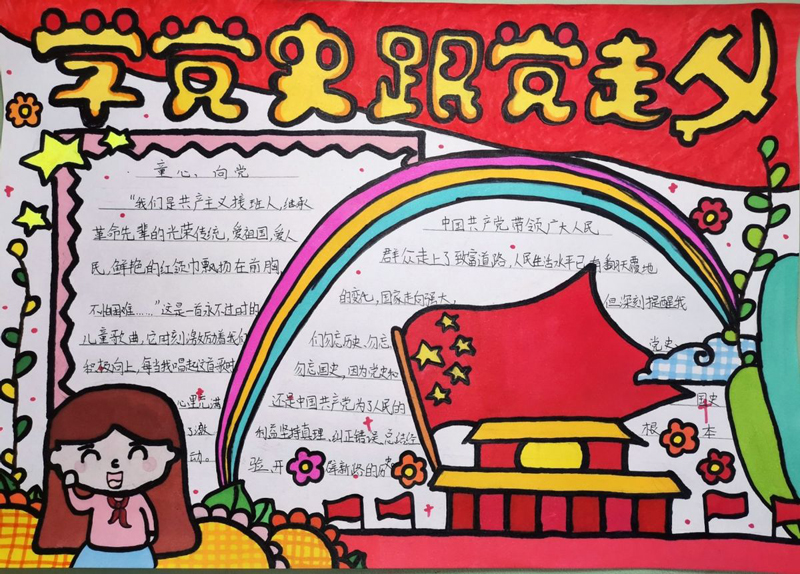 学党史跟党走
童心、向党
“我们是共产主义接班人,继承
革命先辈的光荣传统,爱祖国,爱人
民,鲜艳的红领巾飘扬在前胸,
不怕困难……”这是一首永不过时的
儿童歌曲,它时刻激励着我们
积极向上,每当我唱起这首歌时
心里充满
了激
动。
中国共产党带领广大人民
群众走上了致富道路,人民生活水平已有翻天覆地
的变化,国家走向强大,但深刻提醒我
们勿忘历史、勿忘党史、
勿忘国史,因为党史和国史
还是中国共产党为了人民的根本
利益坚持真理、纠正错误、总结经
验、开辟新路的历史